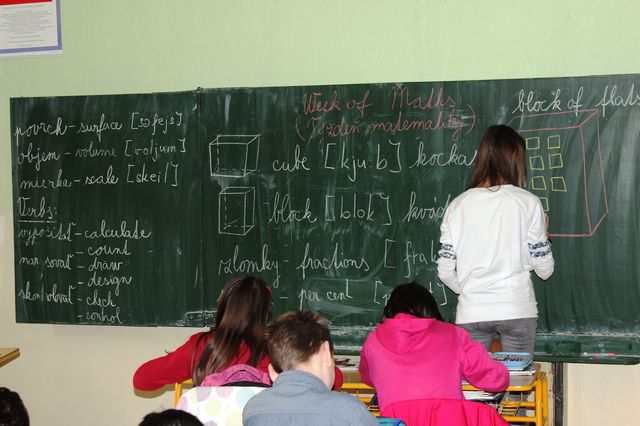 povrch - surface [səfejs]
objem - volume [voljum]
mierka - scale [skeil]
Verbs:
vypočítať - calculate
- count
narysovať - draw
- design
skontrolovať - check
- control
Week of Maths
(Týždeň matematiky)
cube [kju:b] kocka
block [blok] kvád
zlomky - fractions [frak
- per cent [p
block of flats